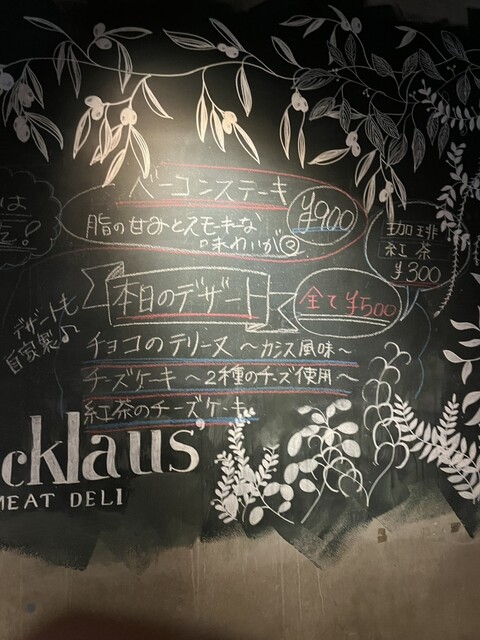 ベーコンステーキ
¥900
脂の甘みとスモーキーな
味わいが
珈琲
紅茶
¥300
本日のデザート
全て¥500
デザートも
自家製♪
チョコのテリーヌ 〜カシス風味〜
チーズケーキ 〜2種のチーズ使用〜
紅茶のチーズケーキ
cklaus'
MEAT DELI